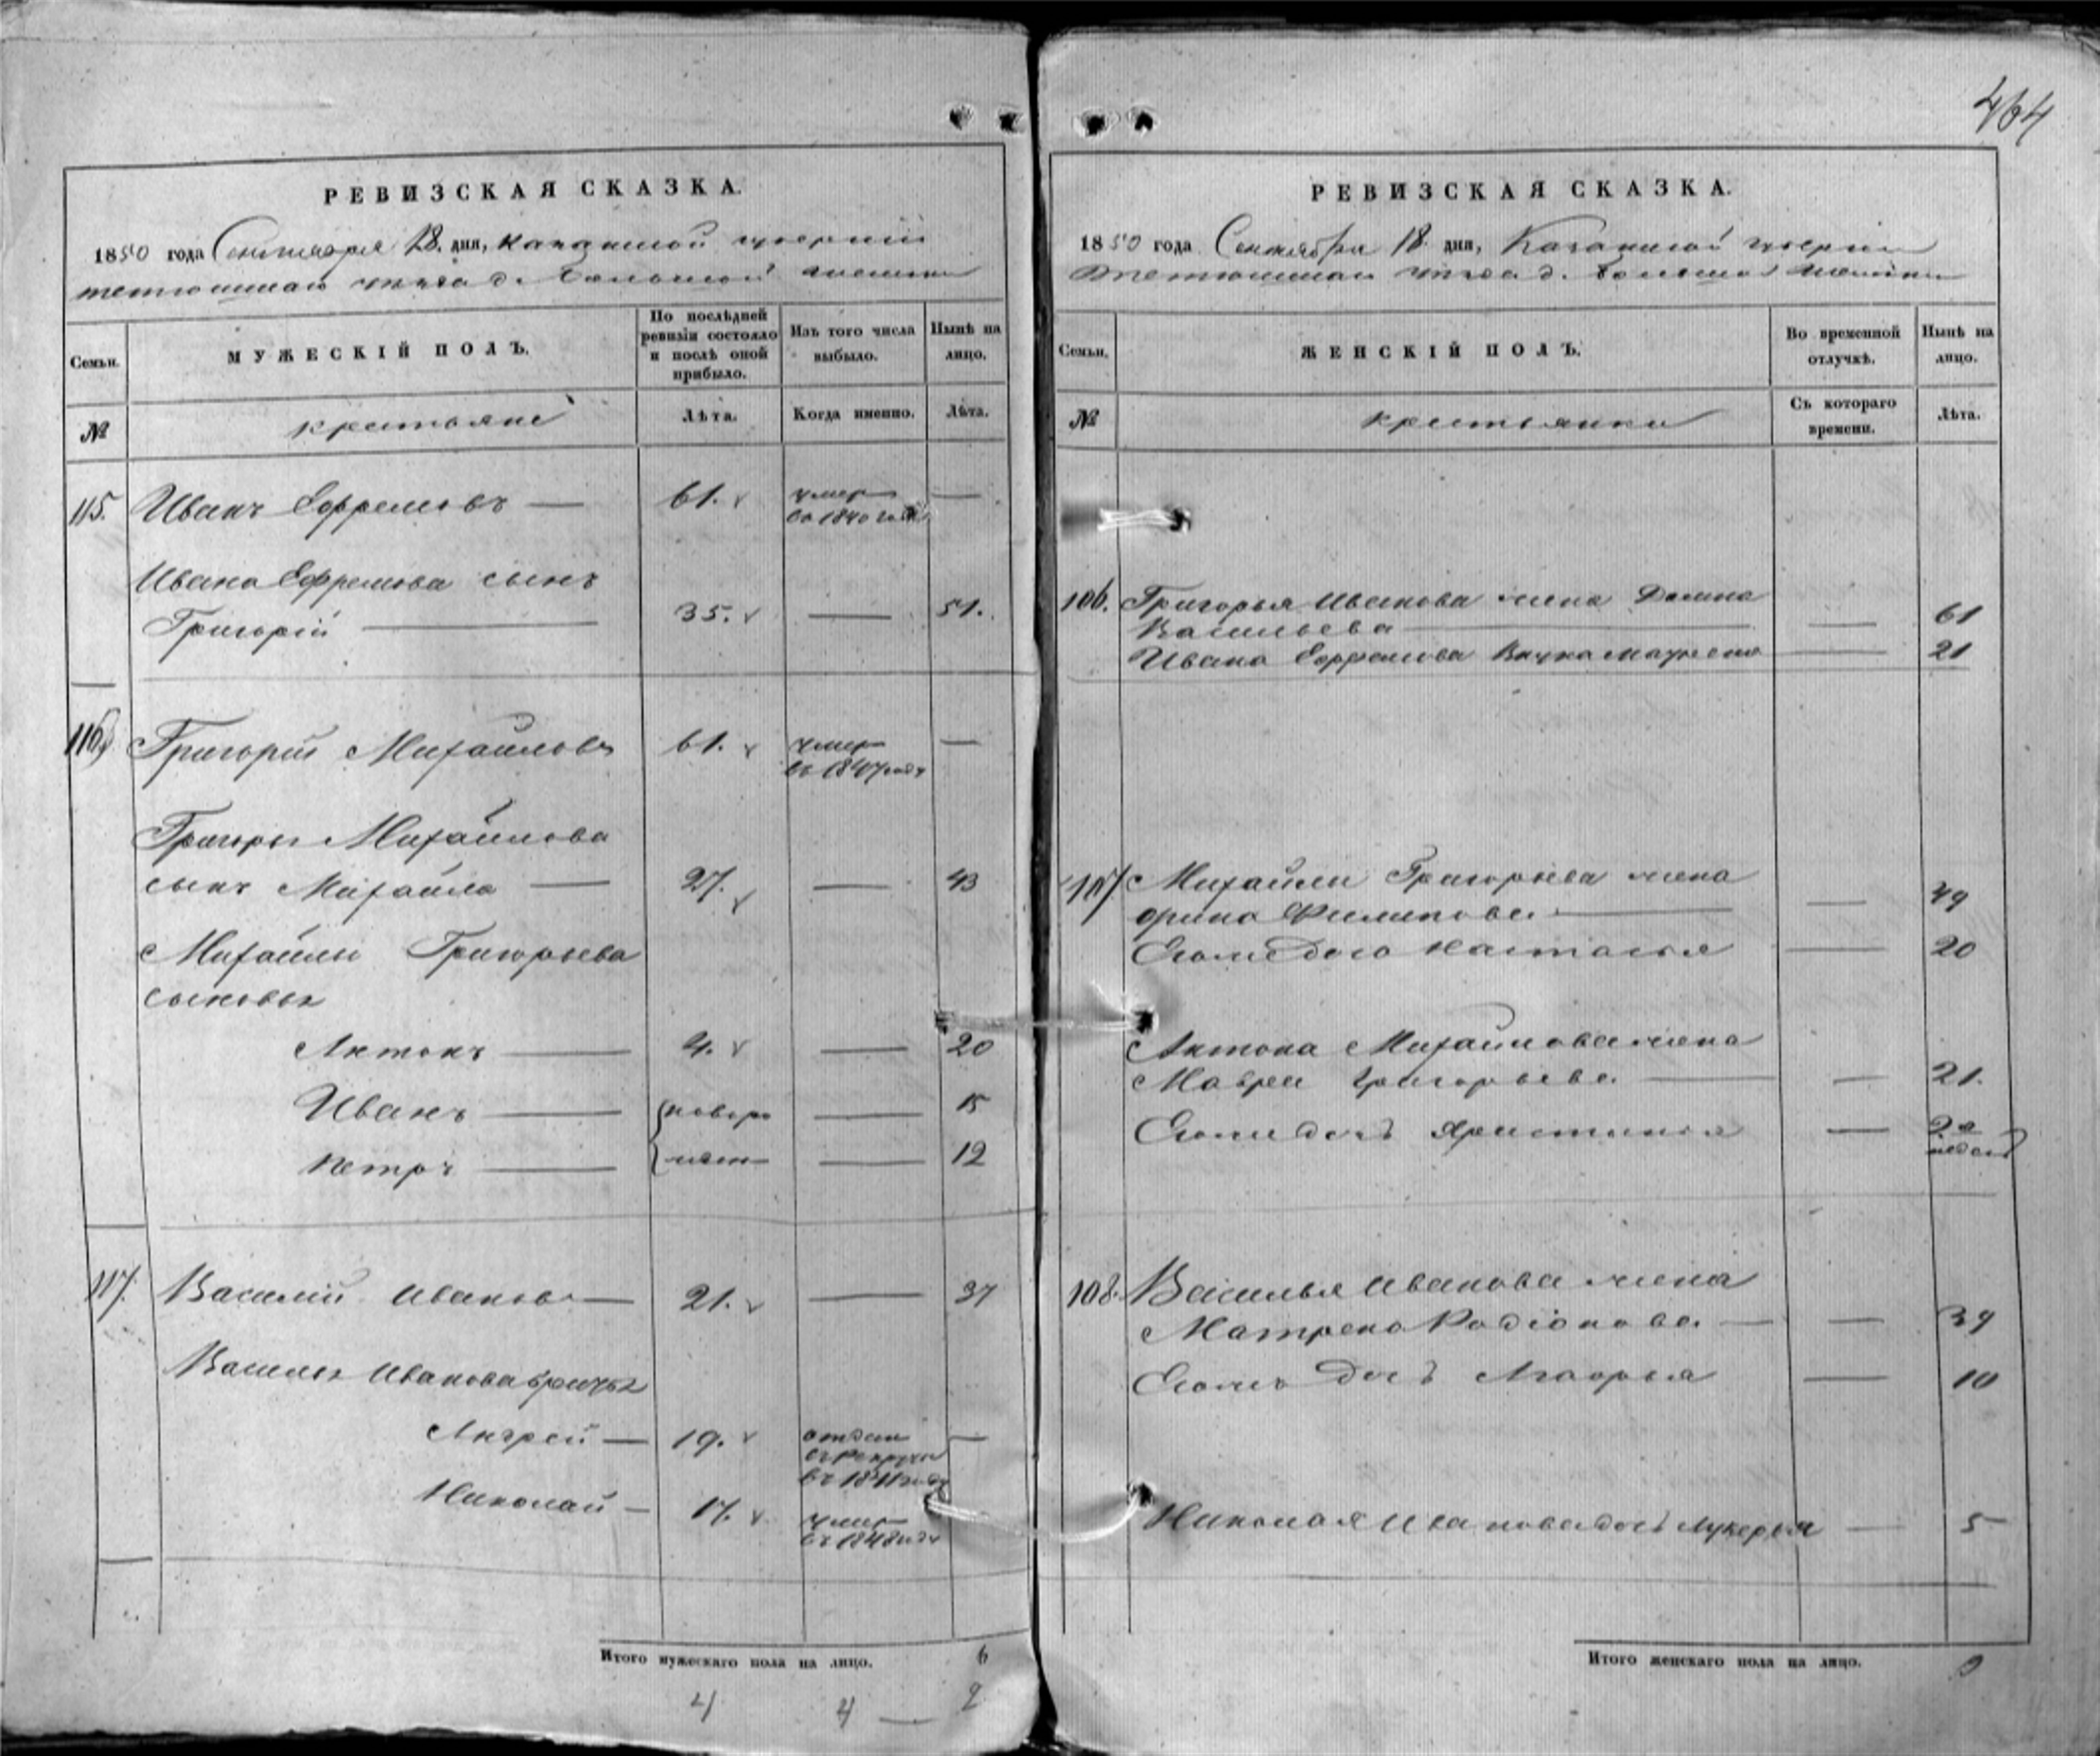 РЕВИЗСКАЯ СКАЗКА.
1850 года Сентября 18. дня, Казанской губернии
тетюшскаго уезда д. Большой
Семьи.
МУЖЕСКІЙ ПОЛЪ.
По послѣдней ревизіи состояло и послѣ оной прибыло.
Изъ того числа выбыло.
Нынѣ на лицо.
№
крестьяне
Лѣта.
Когда именно.
Лѣта.
115. Иванъ Ефремовъ — 61. умер —
во 1840 году
Ивана Ефремова сынъ
Григорій — 35. — 51.
116. Григорій Михайловъ 61. умер —
въ 1847 году
Григорья Михайлова
сынъ Михайла — 27. — 43
Михайлы Григорьева
сыновья
Антонъ — 4. — 20
Иванъ — новоро — 15
Петръ — жден — 12
117. Василий Ивановъ — 21. — 37
Василья Иванова братья
Андрей — 19. отдан —
въ рекруты
въ 1841 году
Николай — 17. умер
въ 1848 году
Итого мужескаго пола на лицо. 6
4 4 — 2
464
РЕВИЗСКАЯ СКАЗКА.
1850 года Сентября 18 дня, Казанской губернии
тетюшскаго уезда д. Большой
Семьи.
ЖЕНСКІЙ ПОЛЪ.
Во временной отлучкѣ.
Нынѣ на лицо.
№
крестьянки
Съ котораго времени.
Лѣта.
106. Григорья Иванова жена Домна
Васильева — — 61
Ивана Ефремова внука — 21
107. Михайлы Григорьева жена
Орина Филипова — — 49
Егоже дочь Настасья — 20
Антона Михайлова жена
Мавра Григорьева — — 21.
Егоже дочь Христинья — 2 недель
108. Василья Иванова жена
Матрена Родіонова — — 39
Егоже дочь — 10
Николая Иванова дочь Лукерья — 5
Итого женскаго пола на лицо. 9